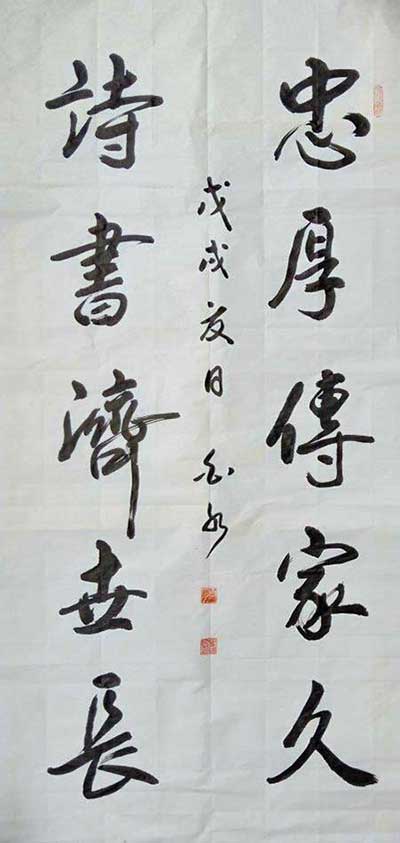 忠厚傳家久
詩書濟世長
戊戌夏日